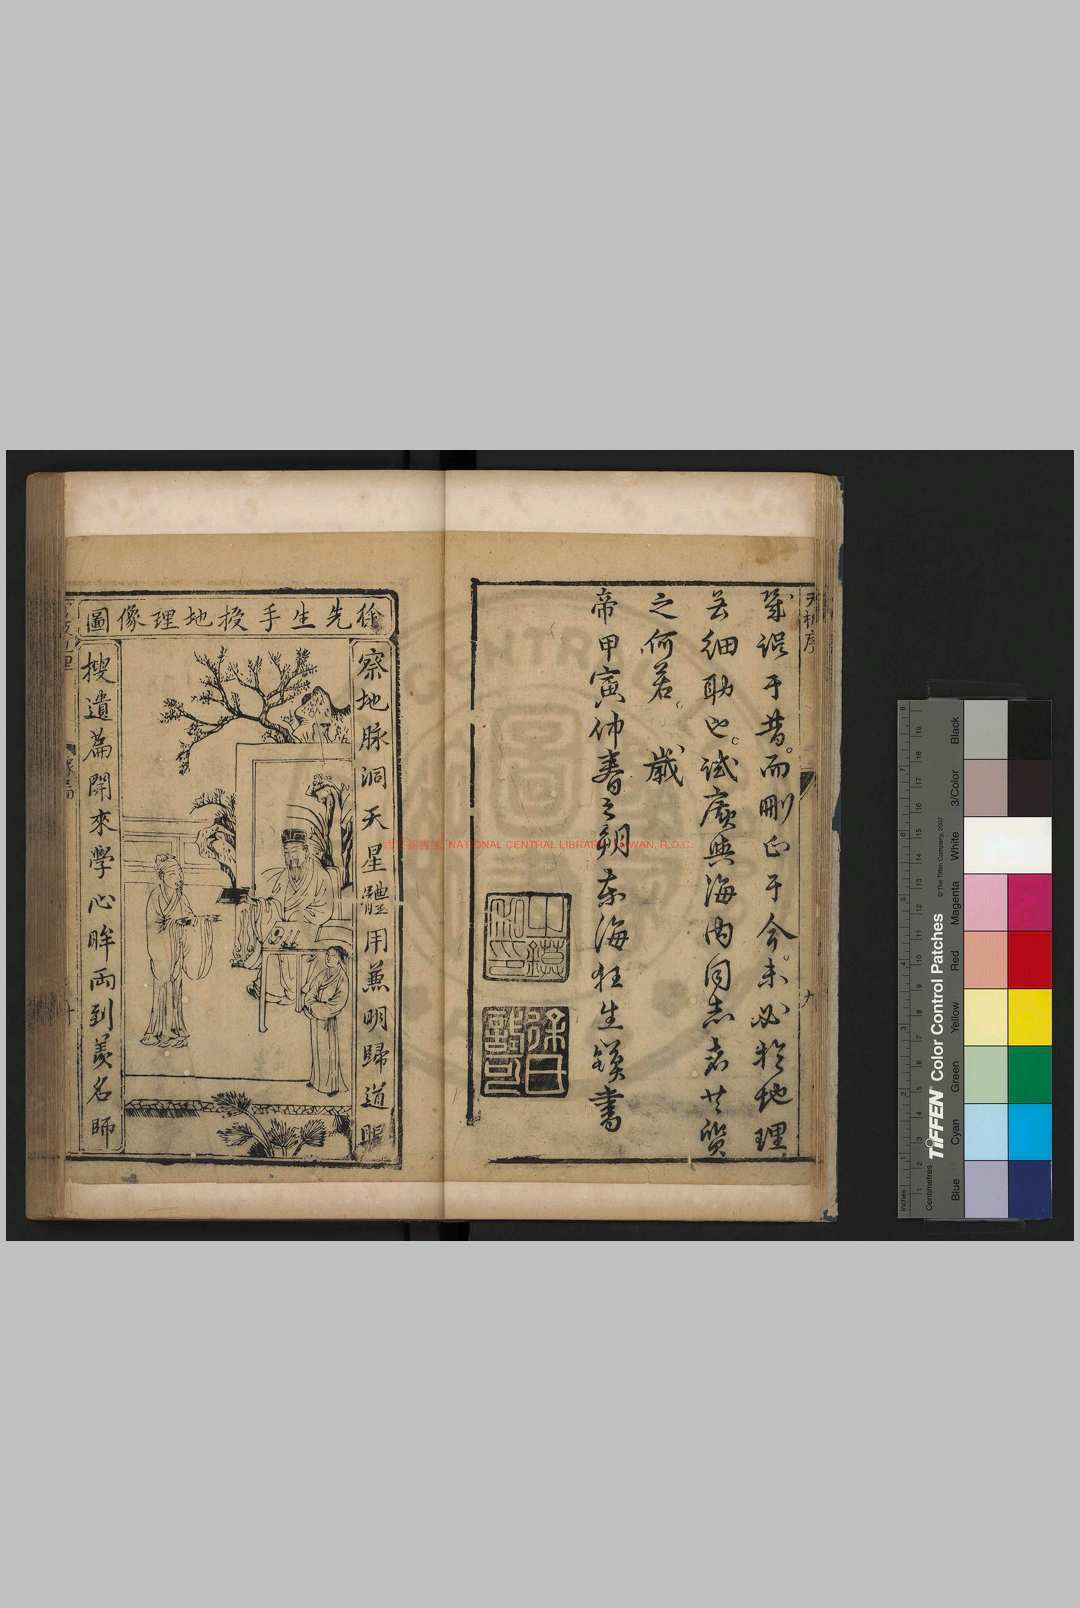 天機序
幾誤于昔。而刪正于今。未必於地理
無細助也。試質與海内同志者共質
之何若。歲
帝甲寅仲春之朔東海狂生鍈書
九
徐先生手授地理像圖
察地脉洞天星體用兼明歸道眼
搜遺篇開來學心眸兩到羨名師
NATIONAL CENTRAL LIBRARY, TAIWAN, R.O.C.
TIFFEN Color Control Patches
© The Tiffen Company, 2007
Inches
Centimetres
Blue
Cyan
Green
Yellow
Red
Magenta
White
3/Color
Black